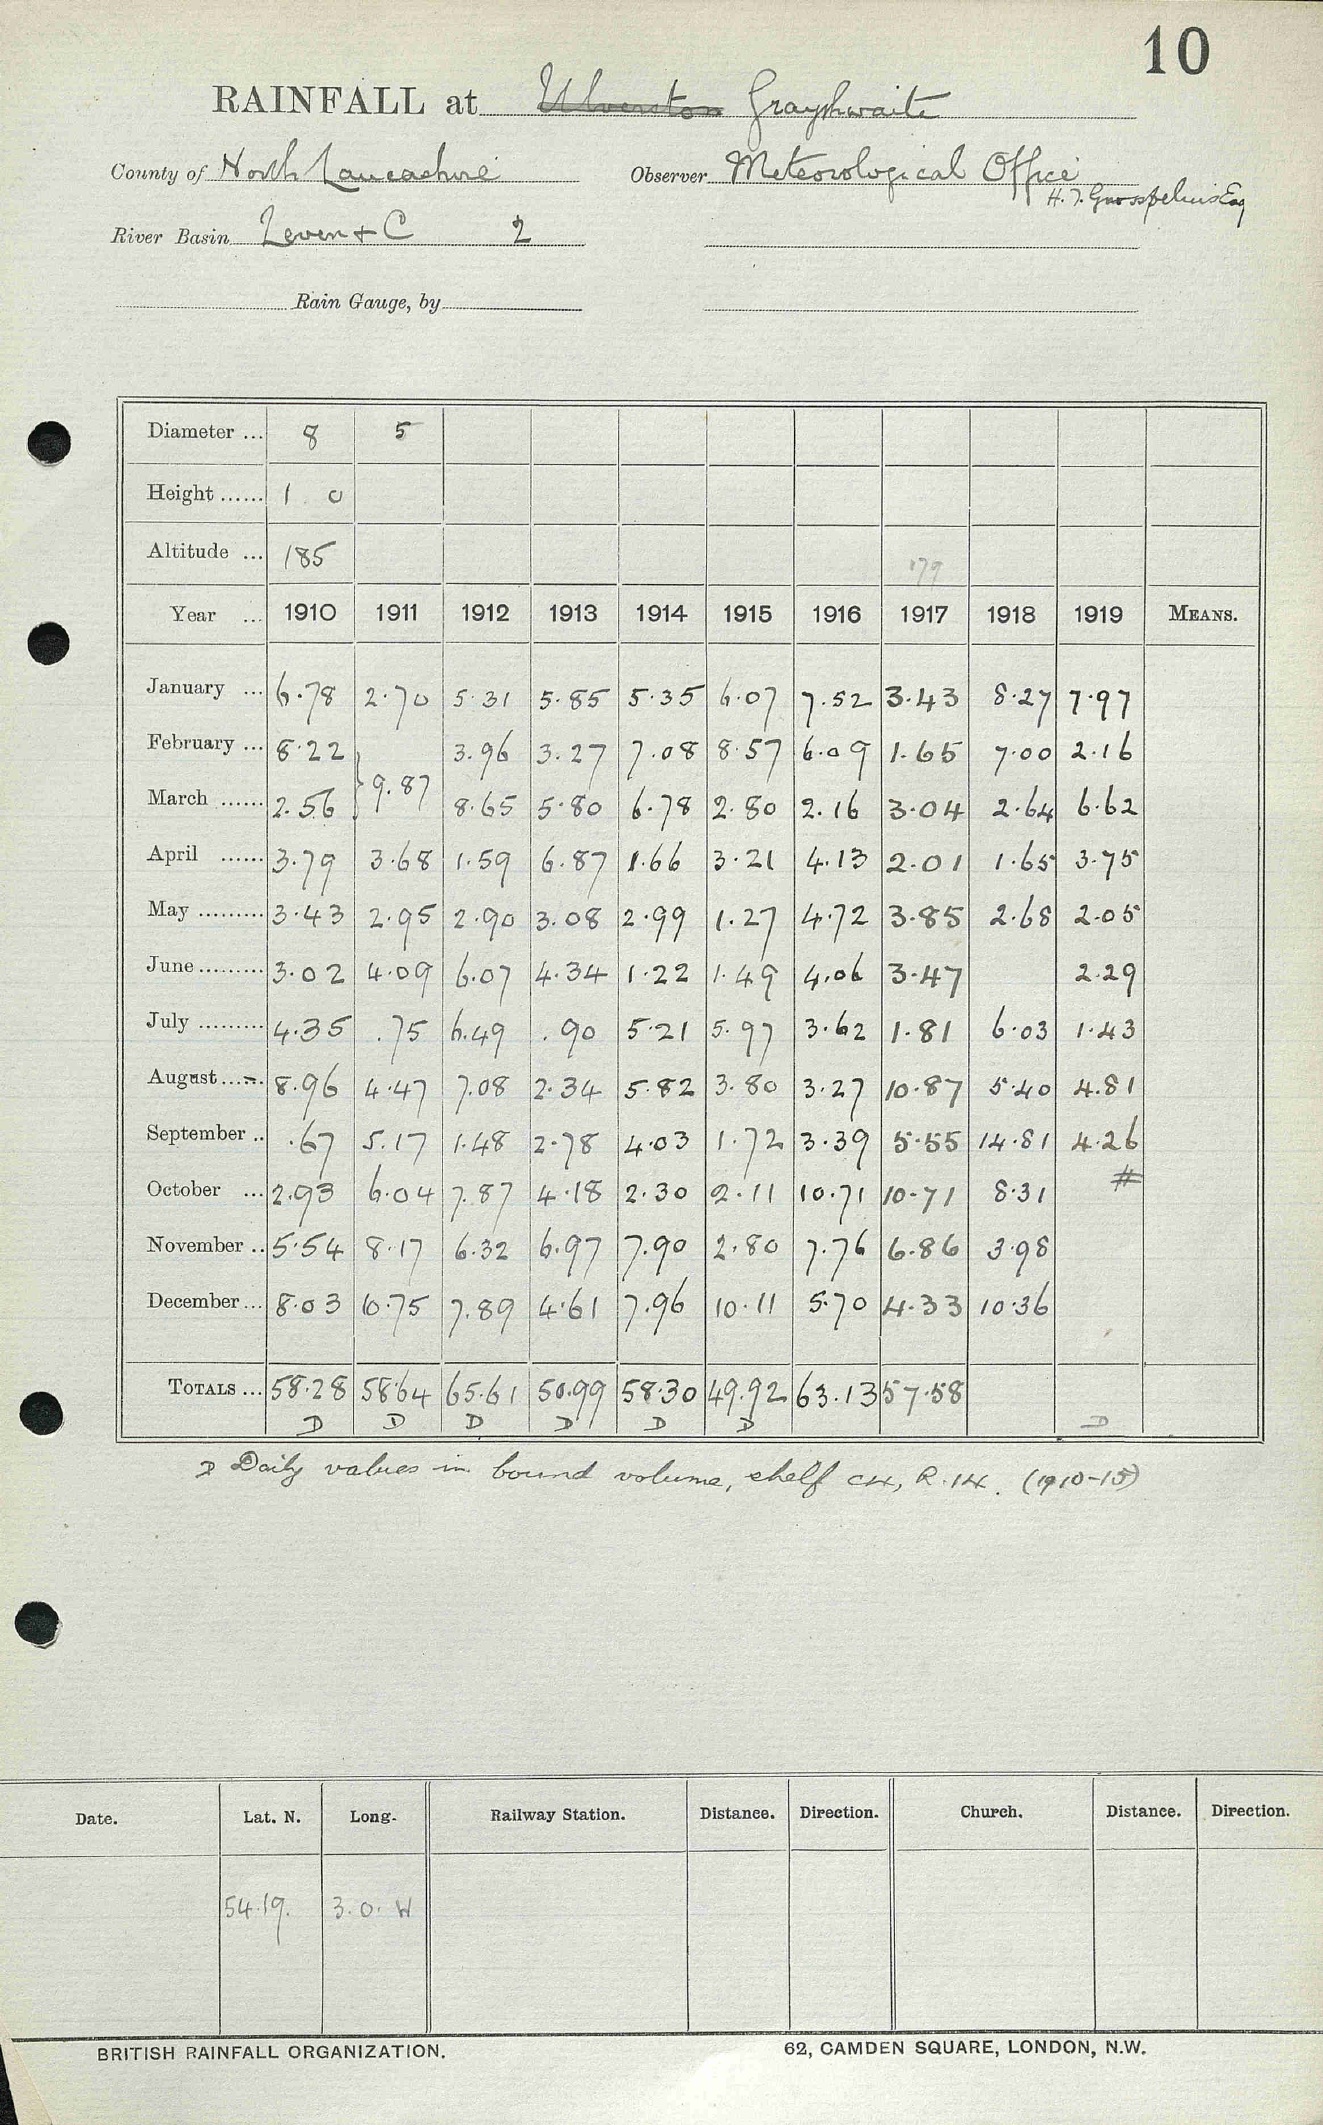 10
RAINFALL at Ulverston Graythwaite
County of North Lancashire Observer Meteorological Office
River Basin Leven + C 2
Rain Gauge, by
Diameter ... 8 5
Height ...... 1 0
Altitude ... 185 179
Year ... 1910 1911 1912 1913 1914 1915 1916 1917 1918 1919 MEANS.
January ... 6.78 2.70 5.31 5.85 5.35 6.07 7.52 3.43 8.27 7.97
February ... 8.22 3.96 3.27 7.08 8.57 6.09 1.65 7.00 2.16
} 9.87
March ...... 2.56 8.65 5.80 6.78 2.80 2.16 3.04 2.64 6.62
April ...... 3.79 3.68 1.59 6.87 1.66 3.21 4.13 2.01 1.65 3.75
May ......... 3.43 2.95 2.90 3.08 2.99 1.27 4.72 3.85 2.68 2.05
June ......... 3.02 4.09 6.07 4.34 1.22 1.49 4.06 3.47 2.29
July ......... 4.35 .75 6.49 .90 5.21 5.97 3.62 1.81 6.03 1.43
August ...... 8.96 4.47 7.08 2.34 5.82 3.80 3.27 10.87 5.40 4.81
September .. .67 5.17 1.48 2.78 4.03 1.72 3.39 5.55 14.81 4.26
October ... 2.93 6.04 7.87 4.18 2.30 2.11 10.71 10.71 8.31 #
November .. 5.54 8.17 6.32 6.97 7.90 2.80 7.76 6.86 3.98
December ... 8.03 10.75 7.89 4.61 7.96 10.11 5.70 4.33 10.36
TOTALS ... 58.28 58.64 65.61 50.99 58.30 49.92 63.13 57.58
D D D D D D D
D Daily values in bound volume, shelf C4, R.14. (1910-15)
Date. Lat. N. Long. Railway Station. Distance. Direction. Church. Distance. Direction.
54.19. 3.0. W
BRITISH RAINFALL ORGANIZATION. 62, CAMDEN SQUARE, LONDON, N.W.